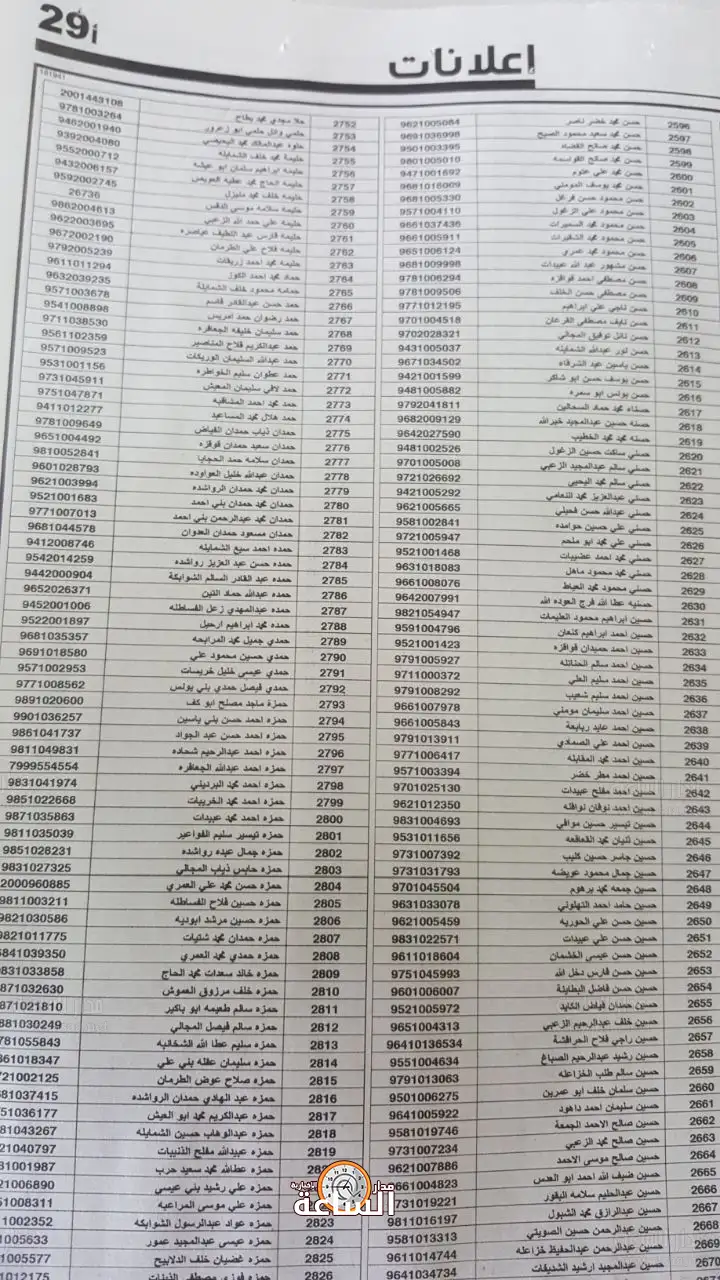 أ29
إعلانات
181941
2596 حسن محمد خضر ناصر 9621005084
2597 حسن محمد سعيد محمود الصبيح 9691036998
2598 حسن محمد صالح القضاه 9501003395
2599 حسن محمد صالح القواسمه 9801005010
2600 حسن محمد علي عتوم 9471001692
2601 حسن محمد يوسف المومني 9681018069
2602 حسن محمود حسن فرغل 9681005330
2603 حسن محمود علي الزغول 9571004110
2604 حسن محمود محمد السميرات 9661037436
2605 حسن محمود محمد الشقيرات 9661005911
2606 حسن محمود محمد عمري 9651006124
2607 حسن مشهور عبد الله عبيدات 9681009998
2608 حسن مصطفى احمد فواقزه 9781006294
2609 حسن مصطفى حسن الخلف 9781009506
2610 حسن ناجي علي ابراهيم 9771012195
2611 حسن نايف مصطفى القرعان 9701004518
2612 حسن نائل توفيق المجالي 9702028321
2613 حسن نور عبدالله الشمايله 9431005037
2614 حسن ياسين عبد الشرفاء 9671034502
2615 حسن يوسف حسن ابو شاكر 9421001599
2616 حسن يونس ابو سمره 9481005882
2617 حسناء محمد حماد السحالين 9792041811
2618 حسنه حسين عبدالمجيد خيرالله 9682009129
2619 حسنه محمد محمد الخطيب 9642027590
2620 حسني ساكت حسين الزغول 9481002526
2621 حسني سالم عبدالمجيد الزعبي 9701005008
2622 حسني سالم محمد اليحيى 9721026692
2623 حسني عبدالعزيز محمد النعامي 9421005292
2624 حسني عبدالله حسن فحيلي 9621005665
2625 حسني علي حسين حوامده 9581002841
2626 حسني علي محمد ابو ملحم 9721005947
2627 حسني محمد احمد عضيبات 9521001468
2628 حسني محمد محمود ماهل 9631018083
2629 حسني محمود محمد العياط 9661008076
2630 حسنيه عطا الله فرج العوده الله 9642007991
2631 حسين ابراهيم محمود العليمات 9821054947
2632 حسين احمد ابراهيم كنعان 9591004796
2633 حسين احمد حميدان فواقزه 9521001423
2634 حسين احمد سالم الختاتنه 9791005927
2635 حسين احمد سليم العلي 9711000372
2636 حسين احمد سليم شعيب 9791008292
2637 حسين احمد سليمان مومني 9661007978
2638 حسين احمد عايد ربابعة 9661005843
2639 حسين احمد علي الصمادي 9791013911
2640 حسين احمد محمد المقابله 9771006417
2641 حسين احمد مطر خضر 9571003394
2642 حسين احمد مفلح عبيدات 9701025130
2643 حسين احمد نوفان نوافله 9621012350
2644 حسين تيسير حسين موافي 9831004693
2645 حسين ثنيان محمد القعاقعه 9531011656
2646 حسين جاسر حسين كليب 9731007392
2647 حسين جمال محمود عويضه 9731031793
2648 حسين جمعه محمد برهوم 9701045504
2649 حسين حامد احمد التهلوني 9631033078
2650 حسين حسن علي الحوريه 9621005459
2651 حسين حسن علي عبيدات 9831022571
2652 حسين حسن عيسى الخشمان 9611018604
2653 حسين حسن فارس دخل الله 9751045993
2654 حسين حسن فاضل البطاينة 9601006007
2655 حسين حمدان فياض الكايد 9521005972
2656 حسين خلف عبدالرحيم الزعبي 9651004313
2657 حسين راجي فلاح الحرافشة 96410136534
2658 حسين رشيد عبدالرحيم الصباغ 9551004634
2659 حسين سالم طلب الخزاعله 9791013063
2660 حسين سلمان خلف ابو عمرين 9501006275
2661 حسين سليمان احمد داهود 9641005922
2662 حسين صالح الاحمد الجمعة 9581019746
2663 حسين صالح محمد الزعبي 9731007234
2664 حسين صالح موسى الاحمد 9621007886
2665 حسين ضيف الله احمد ابو العدس 9661004823
2666 حسين عبدالحليم سلامه البقور 9731019221
2667 حسين عبدالرازق محمد الشبول 9811016197
2668 حسين عبدالرحمن حسين الصويتي 9581013313
2669 حسين عبدالرحمن عبدالحفيظ خزاعله 9611014744
2670 حسين عبدالمجيد ارشيد الشديفات 9641034734
2752 حلا مجدي محمد بطاح 2001443108
2753 حلمي وائل حلمي ابو زعرور 9781003264
2754 حلوه عبدالمالك محمد البعيصي 9462001940
2755 حليمة محمد خلف الشمايله 9392004080
2756 حليمه ابراهيم سلمان ابو عيشه 9552000712
2757 حليمه الحاج محمد عطيه العويس 9432006157
2758 حليمه خلف محمد منيزل 9592002745
2759 حليمه سلامه موسى الدقس 26736
2760 حليمه علي حمد الله الزعبي 9862004613
2761 حليمه فارس عبد اللطيف عياصره 9622003695
2762 حليمه فلاح علي الطرمان 9672002190
2763 حليمه محمد احمد زريقات 9792005239
2764 حماد محمد احمد الكوز 9611011294
2765 حمامه محمود خلف الشمايلة 9632039235
2766 حمد حسن عبدالقادر قاسم 9571003678
2767 حمد رضوان حمد امريس 9541008898
2768 حمد سليمان خليفه الجعافره 9711038530
2769 حمد عبدالكريم فلاح المناصير 9561102359
2770 حمد عبدالله السليمان الوريكات 9571009523
2771 حمد عطوان سليم الخواطره 9531001156
2772 حمد لافي سليمان المعيش 9731045911
2773 حمد محمد احمد المشاقبه 9751047871
2774 حمد هلال محمد المساعيد 9411012277
2775 حمدان ذياب حمدان الفياض 9781009649
2776 حمدان سعيد حمدان قوقزه 9651004492
2777 حمدان سلامه حمد الحجايا 9810052841
2778 حمدان عبدالله خليل العواوده 9601028793
2779 حمدان محمد حمدان الرواشده 9621003994
2780 حمدان محمد حمدان بني احمد 9521001683
2781 حمدان محمد عبدالرحمن بني احمد 9771007013
2782 حمدان مسعود حمدان العدوان 9681044578
2783 حمده احمد سبع الشمايله 9412008746
2784 حمده حسن عبد العزيز رواشده 9542014259
2785 حمده عبد القادر السالم الشوابكة 9442000904
2786 حمده عبدالله حماد التين 9652026371
2787 حمده عبدالمهدي زعل الفساطله 9452001006
2788 حمده محمد ابراهيم ارحيل 9522001897
2789 حمدي جميل محمد المرايحه 9681035357
2790 حمدي حسين محمود علي 9691018580
2791 حمدي عيسى خليل خريسات 9571002953
2792 حمدي فيصل حمدي بني يونس 9771008562
2793 حمزة ماجد مصلح ابو كف 9891020600
2794 حمزه احمد حسن بني ياسين 9901036257
2795 حمزه احمد حسن عبد الجواد 9861041737
2796 حمزه احمد عبدالرحيم شحاده 9811049831
2797 حمزه احمد عبدالله الجعافره 7999554554
2798 حمزه احمد محمد البرديني 9831041974
2799 حمزه احمد محمد الخريبات 9851022668
2800 حمزه احمد محمد عبيدات 9871035863
2801 حمزه تيسير سليم الفواعير 9811035039
2802 حمزه جمال عبده رواشده 9851028231
2803 حمزه حابس ذياب المجالي 9831027325
2804 حمزه حسن محمد علي العمري 2000960885
2805 حمزه حسين فلاح الفساطله 9811003211
2806 حمزه حسين مرشد ابوديه 9821030586
2807 حمزه حمدان محمد شتيات 9821011775
2808 حمزه حمدي محمد العمري 841039350
2809 حمزه خالد سعدات محمد الحاج 831033858
2810 حمزه خلف مرزوق العموش 871032630
2811 حمزه سالم طعيمه ابو باكير 871021810
2812 حمزه سالم فيصل المجالي 881030249
2813 حمزه سليم عطا الله الشخانبه 781055843
2814 حمزه سليمان عقله بني علي 61018347
2815 حمزه صلاح عوض الطرمان 21002125
2816 حمزه عبد الهادي حمدان الرواشده 81037415
2817 حمزه عبدالكريم محمد ابو العيش 51036177
2818 حمزه عبدالوهاب حسين الشمايله 81043267
2819 حمزه عبيدالله مفلح الذنيبات 21040797
حمزه عطالله محمد سعيد حرب 81001987
حمزه علي رشيد بني عيسى 21006890
حمزه علي موسى المراعيه 51008311
2823 حمزه عواد عبدالرسول الشوابكه 1002352
2824 حمزه عيسى عبدالمجيد عمور 1005633
2825 حمزه غضبان خلف الدلابيح 1005577
2826 حمزه فوزي مصطفى الذينات 1012175
مدار الساعة الإخبارية